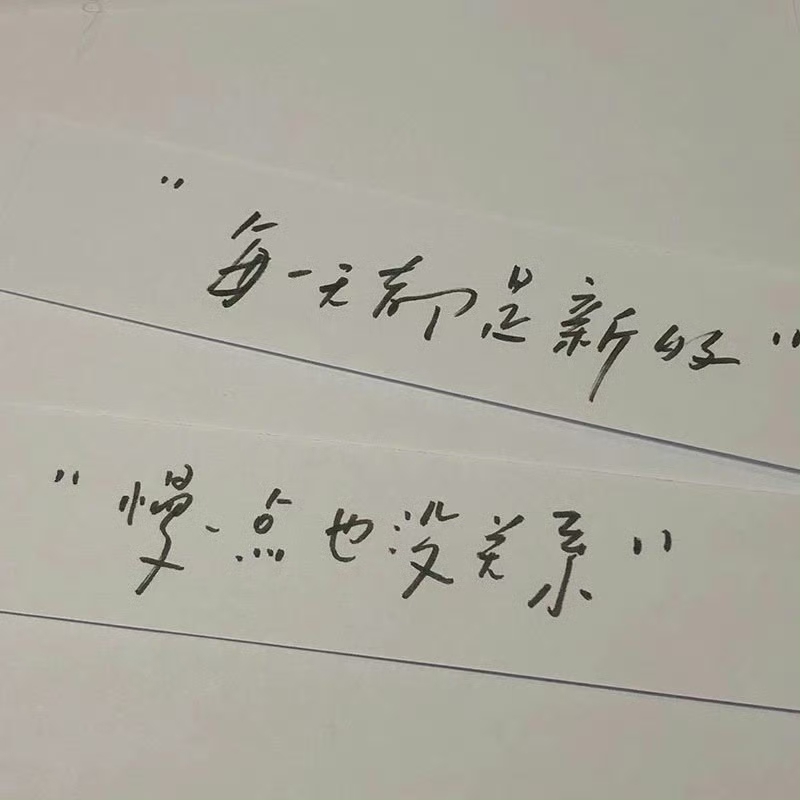 "每一天都是新的"
"慢一点也没关系"